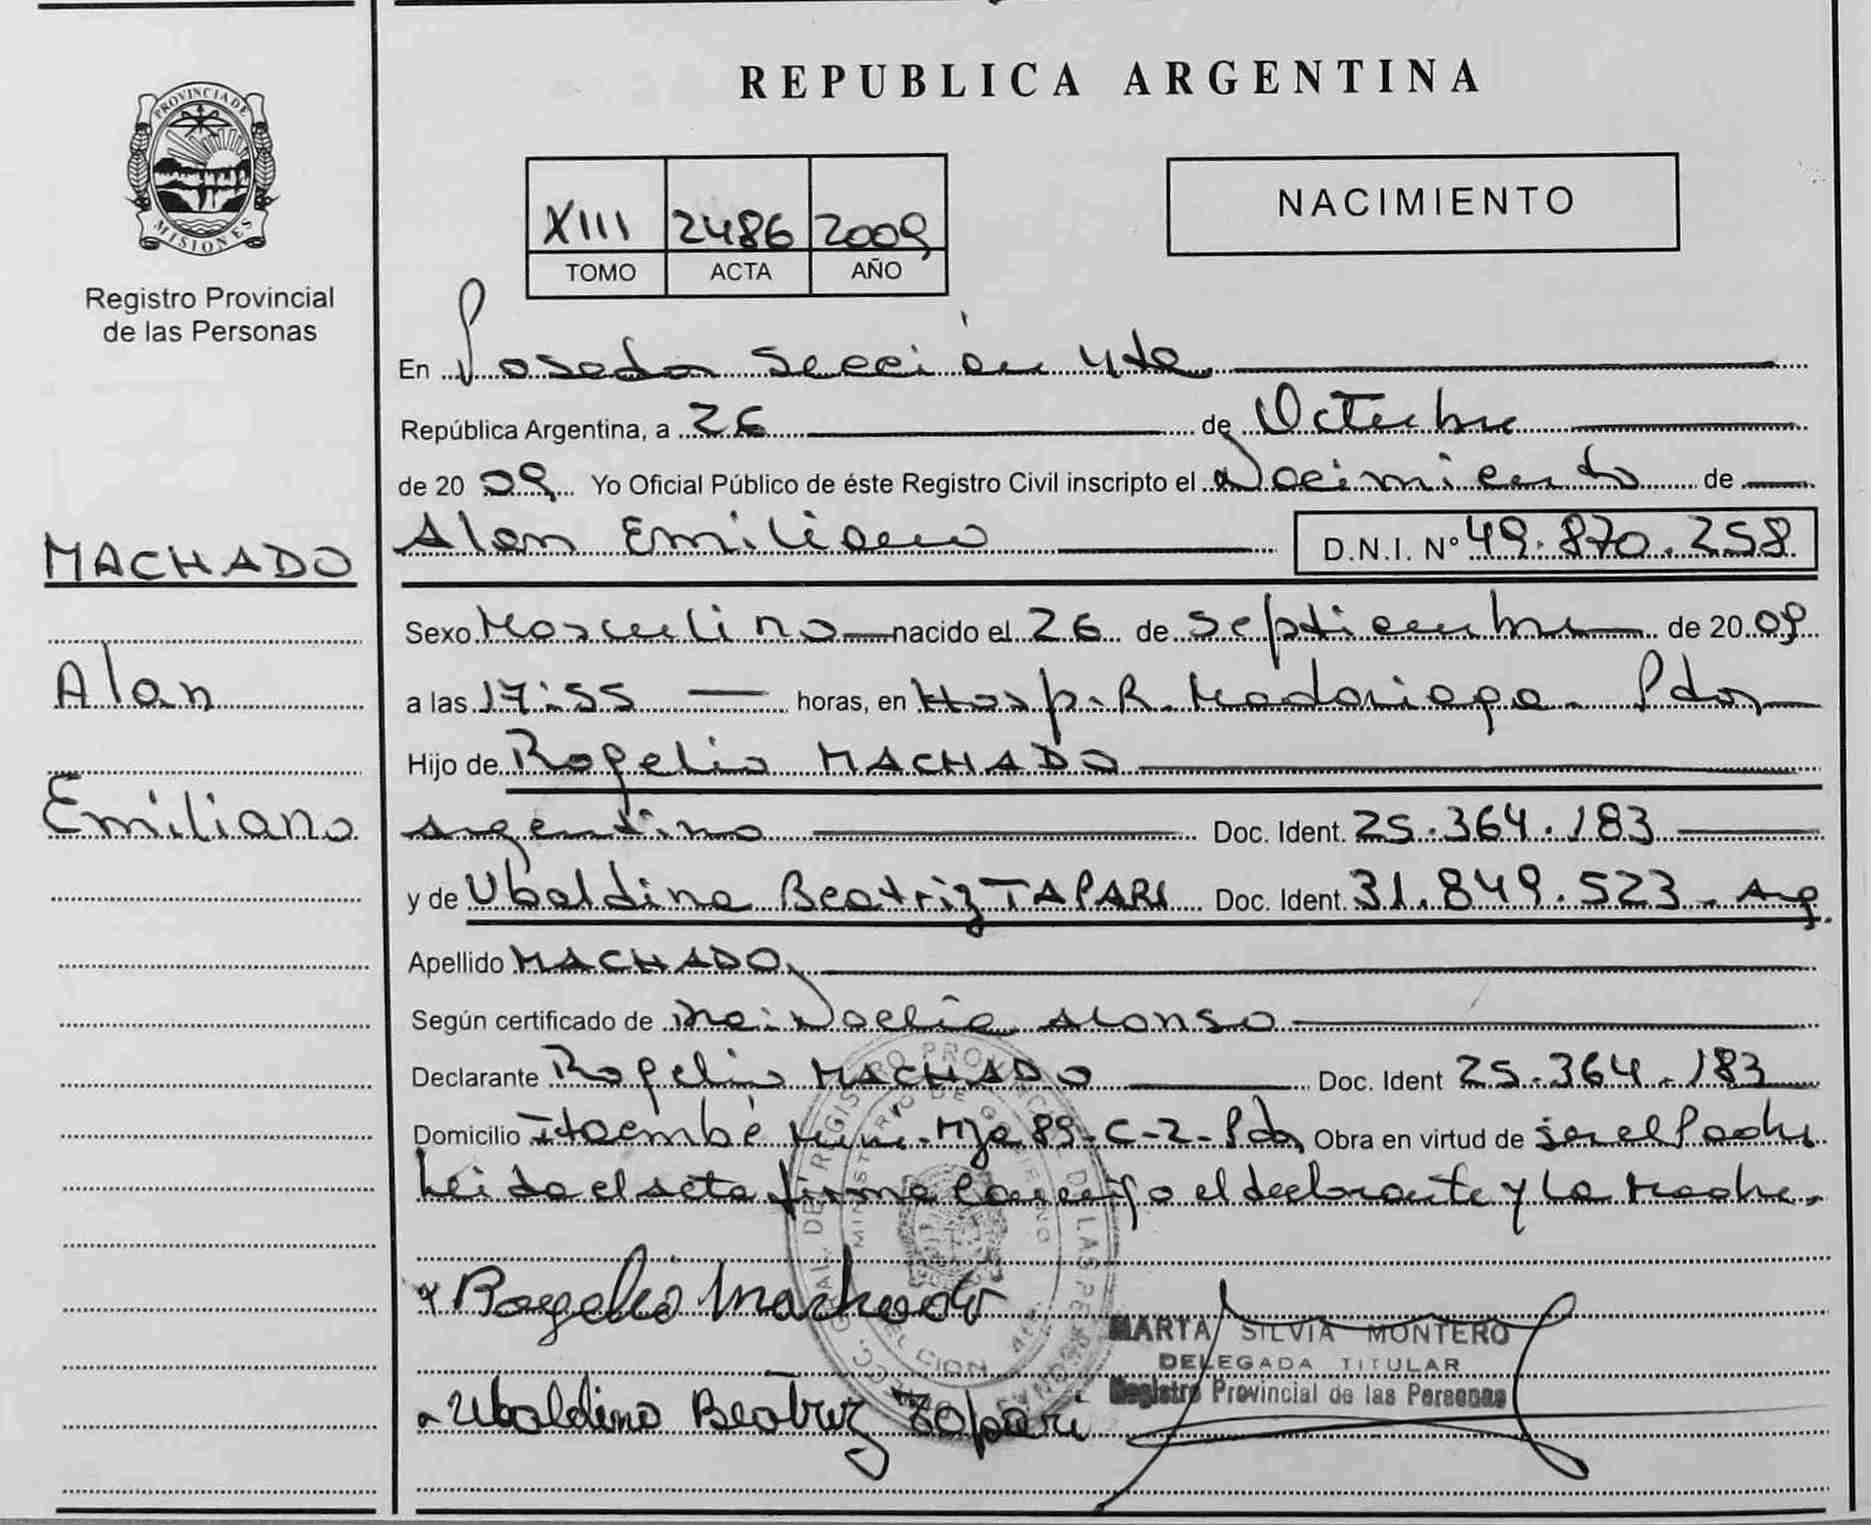 PROVINCIA DE MISIONES
Registro Provincial
de las Personas
MACHADO
Alan
Emiliano
REPUBLICA ARGENTINA
XIII 2486 2009
TOMO ACTA AÑO
NACIMIENTO
En Posadas Sección 4ta
República Argentina, a 26 de Octubre
de 2009 Yo Oficial Público de éste Registro Civil inscripto el Nacimiento de
Alan Emiliano D.N.I. N° 49.870.258
Sexo Masculino nacido el 26 de Septiembre de 2009
a las 17:55 horas, en Hosp. R. Madariaga - Pdas
Hijo de Rogelio MACHADO
argentino Doc. Ident. 25.364.183
y de Ubaldina Beatriz TAPARI Doc. Ident. 31.849.523 - Arg.
Apellido MACHADO
Según certificado de Noelia Alonso
Declarante Rogelio MACHADO Doc. Ident 25.364.183
Domicilio Itaembé Miní - Mza 89 - C-2 - Pdas Obra en virtud de ser el Padre
Leída el acta firma conmigo el declarante y la Madre.
Rogelio Machado
MARTA SILVIA MONTERO
DELEGADA TITULAR
Registro Provincial de las Personas
Ubaldina Beatriz Tapari